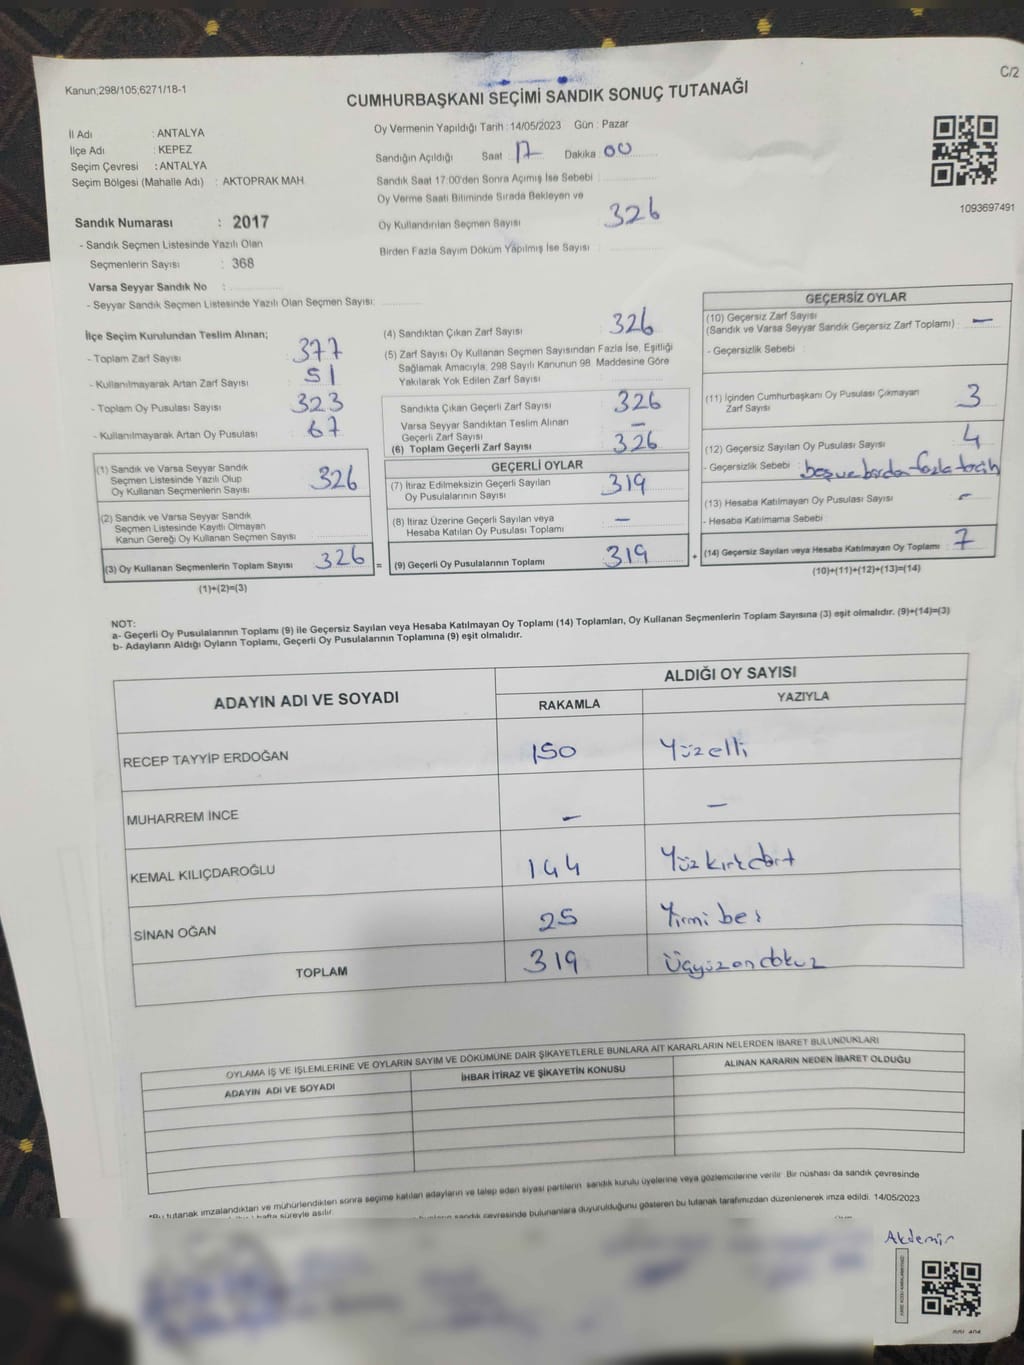 Kanun;298/105;6271/18-1
C/2
CUMHURBAŞKANI SEÇİMİ SANDIK SONUÇ TUTANAĞI
İl Adı : ANTALYA
İlçe Adı : KEPEZ
Seçim Çevresi : ANTALYA
Seçim Bölgesi (Mahalle Adı) : AKTOPRAK MAH.
Oy Vermenin Yapıldığı Tarih : 14/05/2023 Gün : Pazar
Sandığın Açıldığı Saat : 17 Dakika : 00
Sandık Saat 17:00'den Sonra Açımış İse Sebebi :
Oy Verme Saati Bitiminde Sırada Bekleyen ve
Oy Kullandırılan Seçmen Sayısı 326
Birden Fazla Sayım Döküm Yapılmış İse Sayısı :
1093697491
Sandık Numarası : 2017
- Sandık Seçmen Listesinde Yazılı Olan
Seçmenlerin Sayısı : 368
Varsa Seyyar Sandık No :
- Seyyar Sandık Seçmen Listesinde Yazılı Olan Seçmen Sayısı:
İlçe Seçim Kurulundan Teslim Alınan;
- Toplam Zarf Sayısı 377
- Kullanılmayarak Artan Zarf Sayısı 51
- Toplam Oy Pusulası Sayısı 323
- Kullanılmayarak Artan Oy Pusulası 67
(1) Sandık ve Varsa Seyyar Sandık
Seçmen Listesinde Yazılı Olup
Oy Kullanan Seçmenlerin Sayısı 326
(2) Sandık ve Varsa Seyyar Sandık
Seçmen Listesinde Kayıtlı Olmayan
Kanun Gereği Oy Kullanan Seçmen Sayısı
(3) Oy Kullanan Seçmenlerin Toplam Sayısı 326 =
(1)+(2)=(3)
(4) Sandıktan Çıkan Zarf Sayısı 326
(5) Zarf Sayısı Oy Kullanan Seçmen Sayısından Fazla İse, Eşitliği
Sağlamak Amacıyla, 298 Sayılı Kanunun 98. Maddesine Göre
Yakılarak Yok Edilen Zarf Sayısı
Sandıkta Çıkan Geçerli Zarf Sayısı 326
Varsa Seyyar Sandıktan Teslim Alınan
Geçerli Zarf Sayısı —
(6) Toplam Geçerli Zarf Sayısı 326
GEÇERLİ OYLAR
(7) İtiraz Edilmeksizin Geçerli Sayılan
Oy Pusulalarının Sayısı 319
(8) İtiraz Üzerine Geçerli Sayılan veya
Hesaba Katılan Oy Pusulası Toplamı —
(9) Geçerli Oy Pusulalarının Toplamı 319 +
GEÇERSİZ OYLAR
(10) Geçersiz Zarf Sayısı
(Sandık ve Varsa Seyyar Sandık Geçersiz Zarf Toplamı) —
- Geçersizlik Sebebi :
(11) İçinden Cumhurbaşkanı Oy Pusulası Çıkmayan
Zarf Sayısı 3
(12) Geçersiz Sayılan Oy Pusulası Sayısı 4
- Geçersizlik Sebebi : boş ve birden fazla tercih
(13) Hesaba Katılmayan Oy Pusulası Sayısı -
- Hesaba Katılmama Sebebi
(14) Geçersiz Sayılan veya Hesaba Katılmayan Oy Toplamı 7
(10)+(11)+(12)+(13)=(14)
NOT:
a- Geçerli Oy Pusulalarının Toplamı (9) ile Geçersiz Sayılan veya Hesaba Katılmayan Oy Toplamı (14) Toplamları, Oy Kullanan Seçmenlerin Toplam Sayısına (3) eşit olmalıdır. (9)+(14)=(3)
b- Adayların Aldığı Oyların Toplamı, Geçerli Oy Pusulalarının Toplamına (9) eşit olmalıdır.
ADAYIN ADI VE SOYADI ALDIĞI OY SAYISI
RAKAMLA YAZIYLA
RECEP TAYYİP ERDOĞAN 150 Yüzelli
MUHARREM İNCE — —
KEMAL KILIÇDAROĞLU 144 Yüz kırk dört
SİNAN OĞAN 25 Yirmi beş
TOPLAM 319 Üçyüz on dokuz
OYLAMA İŞ VE İŞLEMLERİNE VE OYLARIN SAYIM VE DÖKÜMÜNE DAİR ŞİKAYETLERLE BUNLARA AİT KARARLARIN NELERDEN İBARET BULUNDUKLARI
ADAYIN ADI VE SOYADI İHBAR İTİRAZ VE ŞİKAYETİN KONUSU ALINAN KARARIN NEDEN İBARET OLDUĞU
*Bu tutanak imzalandıktan ve mühürlendikten sonra seçime katılan adayların ve talep eden siyasi partilerin sandık kurulu üyelerine veya gözlemcilerine verilir. Bir nüshası da sandık çevresinde
hafta süreyle asılır.
sandık çevresinde bulunanlara duyurulduğunu gösteren bu tutanak tarafımızdan düzenlenerek imza edildi. 14/05/2023
Akdemir